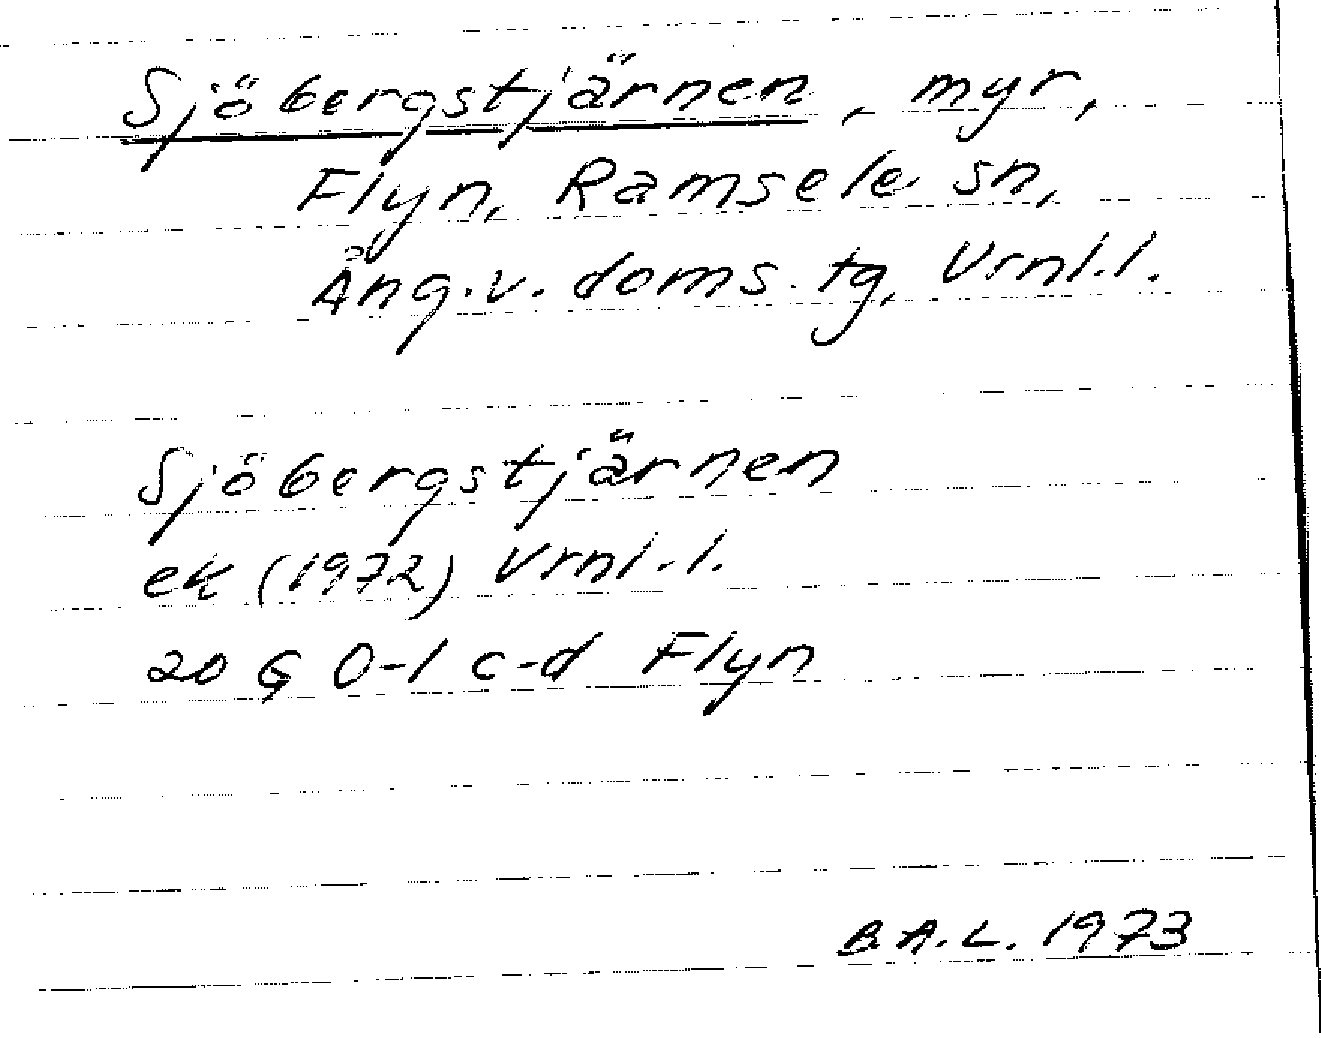 Sjöbergstjärnen, myr,
Flyn, Ramsele sn,
Ång.v. doms. tg, Vrnl.l.
Sjöbergstjärnen
ek (1972) Vrnl.l.
20 G 0-1 c-d Flyn
B.A.L. 1973